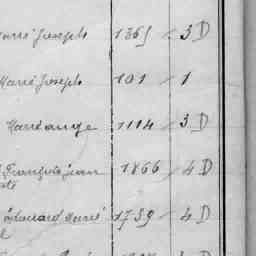 Marie Joseph 1361 3 D
Marie Joseph 101 1
Marie ange 1114 3 D
François Jean 1866 4 D
édouard Marie 1739 4 D